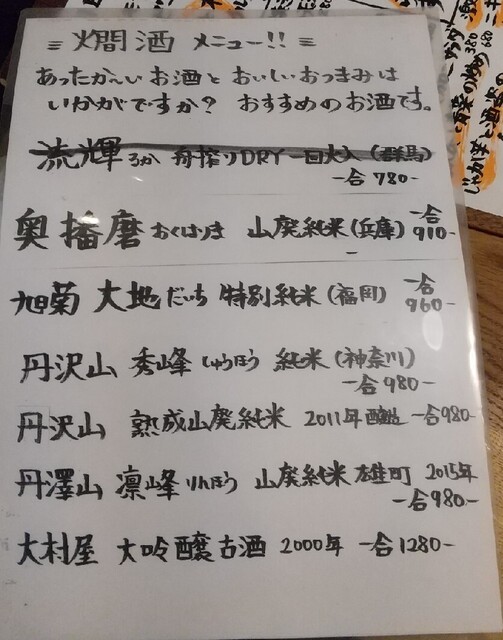 ≡ 燗酒 メニュー!! ≡
あったか〜いお酒とおいしいおつまみは
いかがですか? おすすめのお酒です。
流輝 るか 舟搾りDRY一回火入(群馬)
一合780-
奥播磨 おくはりま 山廃純米(兵庫) 一合910-
旭菊 大地 だいち 特別純米(福岡) 一合960-
丹沢山 秀峰 しゅうほう 純米(神奈川)
一合980-
丹沢山 熟成山廃純米 2011年醸造 一合980-
丹澤山 凛峰 りんほう 山廃純米 雄町 2015年
一合980-
大村屋 大吟醸古酒 2000年 一合1280-